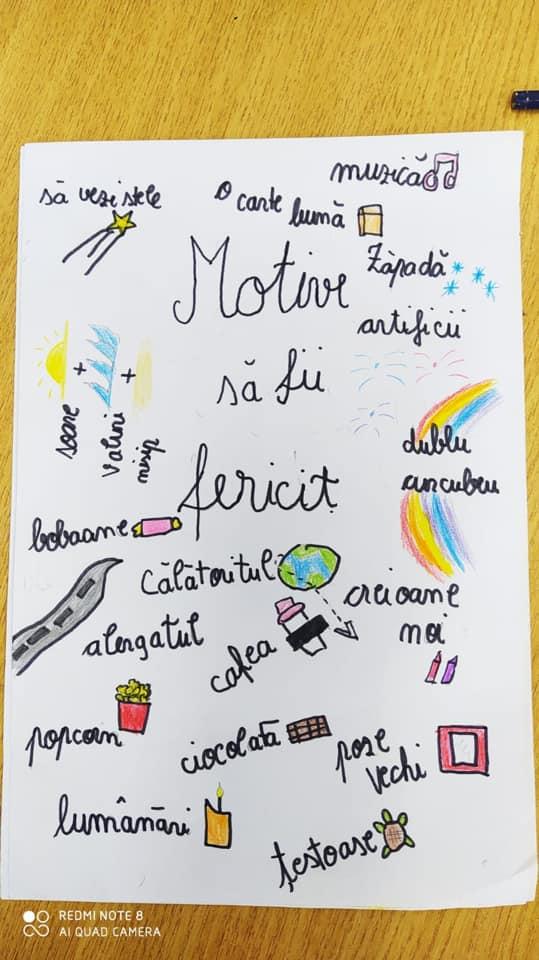 muzică
să vezi stele
O carte bună
Zăpadă
Motive
artificii
să fii
soare
+
valuri
+
nisip
dublu
curcubeu
fericit
boboane
călătoritul
creioane
noi
alergatul
cafea
popcorn
ciocolată
poze
vechi
lumânări
țestoase
REDMI NOTE 8
AI QUAD CAMERA